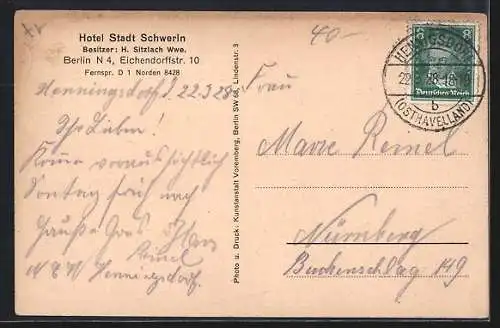 Hotel Stadt Schwerin
Besitzer: H. Sitzlach Wwe.
Berlin N 4, Eichendorffstr. 10
Fernspr. D 1 Norden 8428
Henningsdorf, 22.3.28
Ihr Lieben!
Komme voraussichtlich
Sonntag früh nach
Hause.
Henningsdorf.
Photo u. Druck: Kunstanstalt Voremberg, Berlin SW 68, Lindenstr. 3
40-
Frau
Marie Remel
Nürnberg
Buchenschlag 149
8 8
Deutsches Reich
HENNIGSDORF
22.3.28
b
(OSTHAVELLAND)